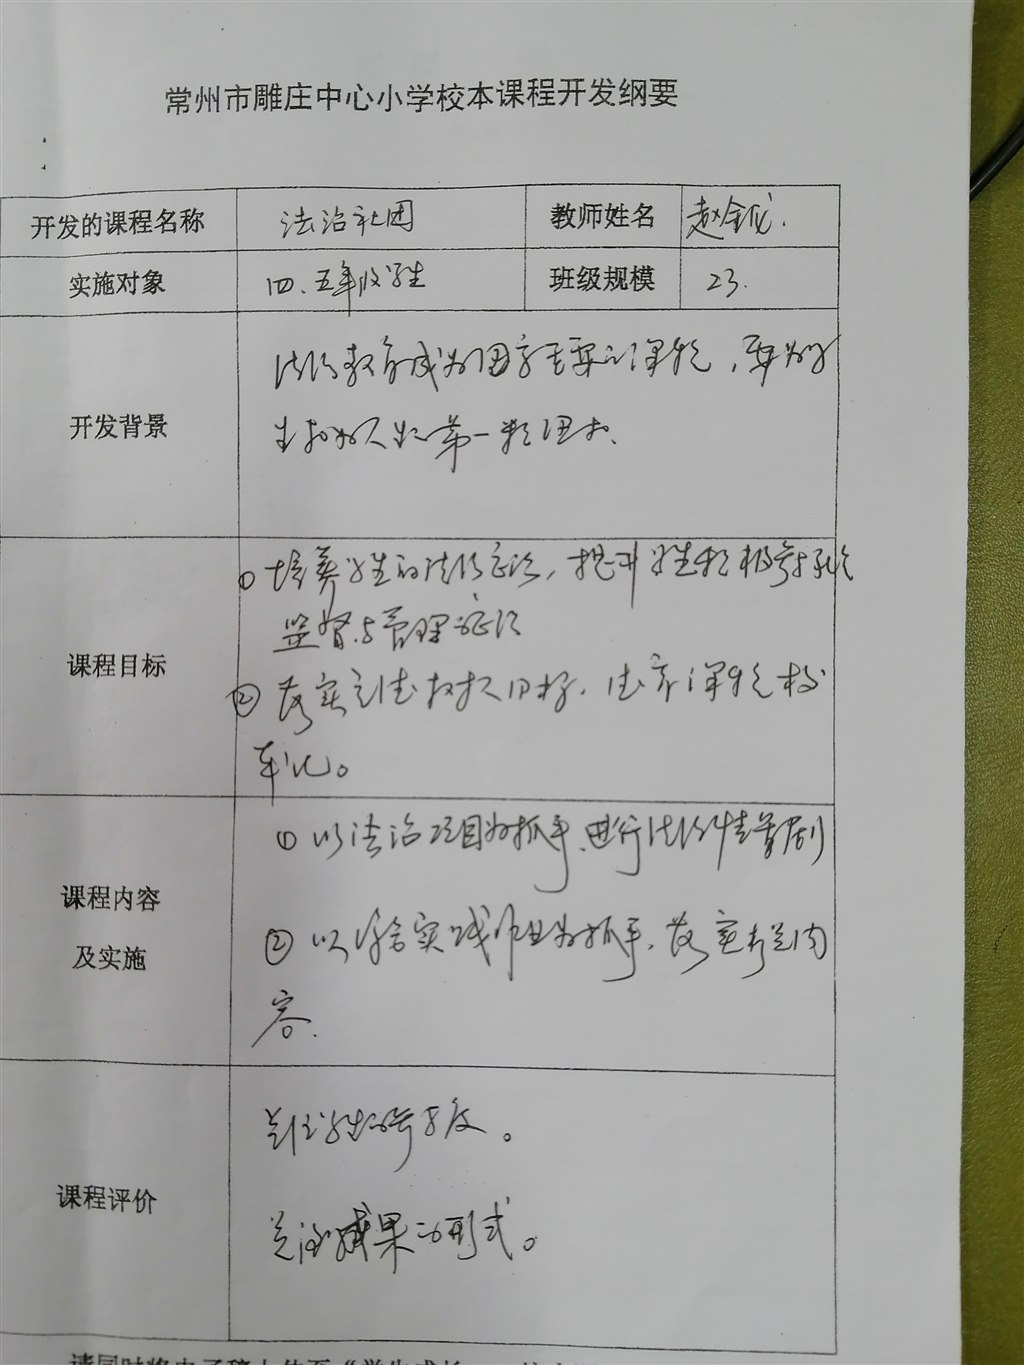 常州市雕庄中心小学校本课程开发纲要
开发的课程名称 法治社团 教师姓名 赵金龙.
实施对象 四、五年级学生 班级规模 23.
开发背景
法治教育成为国家重要的课程,
第一
课程目标
①培养学生的法治意识,提升学生积极参与
监督与管理意识
②落实立德树人目标,
课程内容
及实施
①以法治项目为抓手,进行法治情景剧
②以综合实践作业为抓手,落实相关内
容.
课程评价
关注学生的参与度。
关注成果的形式。